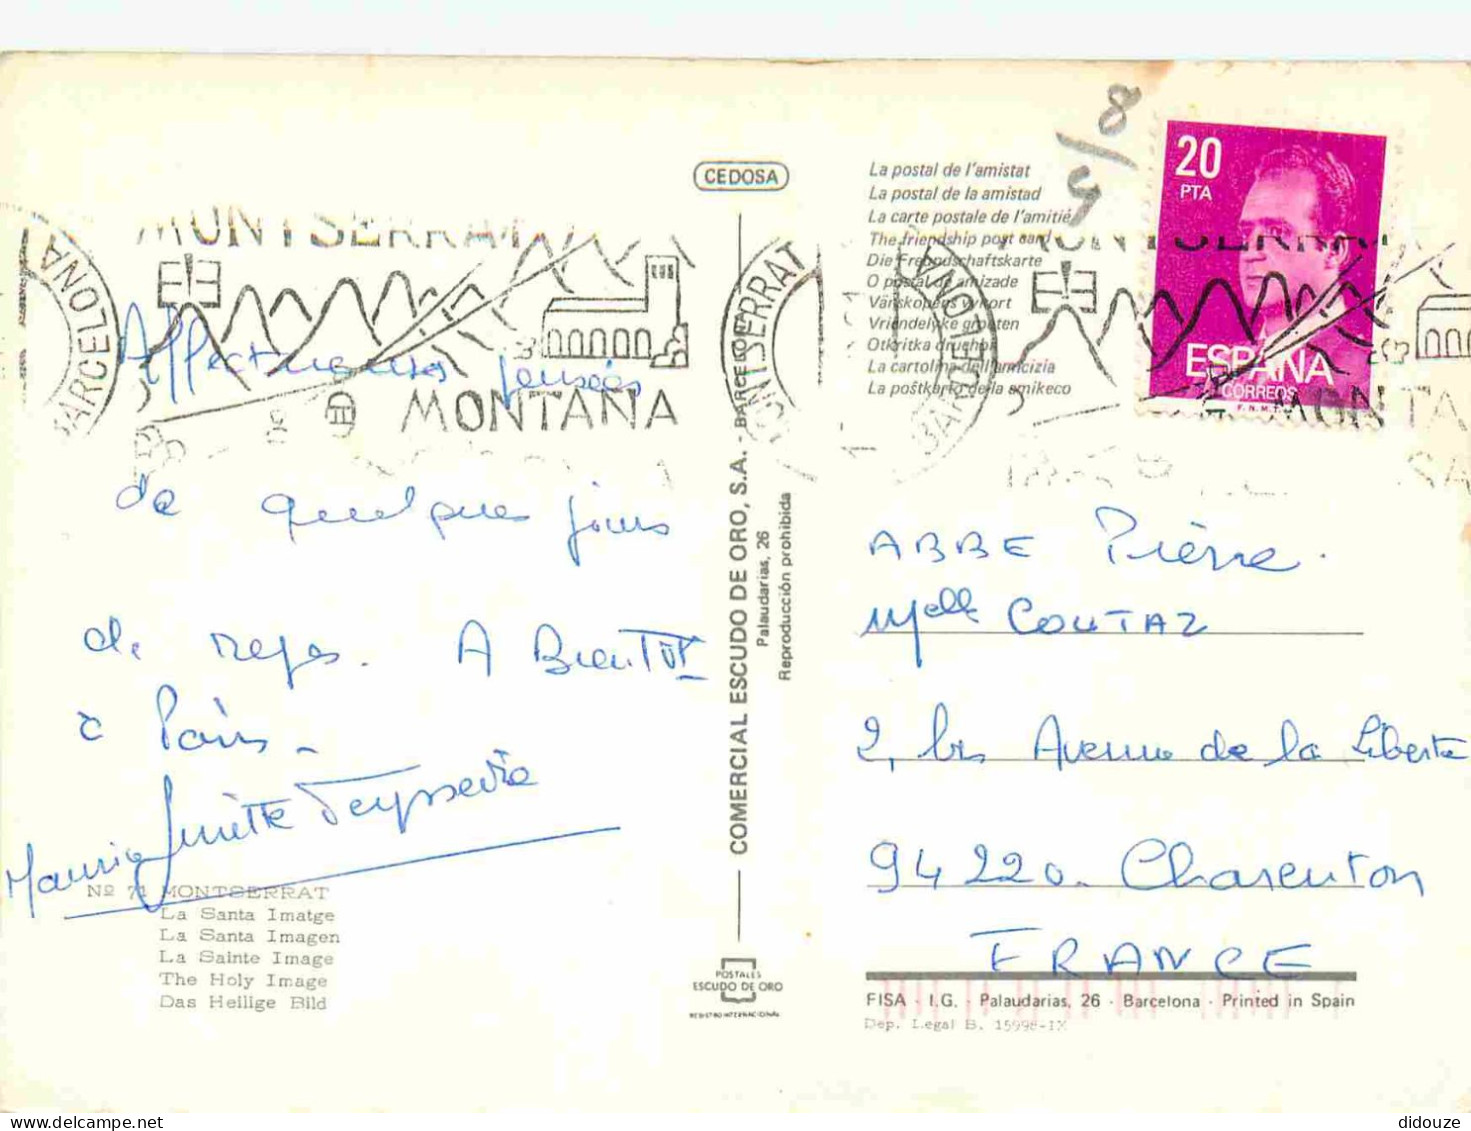 CEDOSA
La postal de l'amistat
La postal de la amistad
La carte postale de l'amitié
The friendship post card
Die Freundschaftskarte
O postal de amizade
Vänskapens vykort
Vriendelyke groeten
Otkritka druchbi
La cartolina dell'amicizia
La poŝtkarto de la amikeco
8/5
20
PTA
ESPAÑA
CORREOS
F.N.M.T.
MONTSERRAT
BARCELONA
MONTSERRAT
MONTAÑA
MONTSERRAT
BARCELONA
Affectueuses pensées
de quelques jours
de repos. A Bientôt
à Paris -
Teyssedre
ABBE Pierre.
Melle COUTAZ
2, bis Avenue de la Liberté
94220. Charenton
FRANCE
COMERCIAL ESCUDO DE ORO, S.A. - BARCELONA
Palaudarias, 26
Reproducción prohibida
Nº 71 MONTSERRAT
La Santa Imatge
La Santa Imagen
La Sainte Image
The Holy Image
Das Heilige Bild
POSTALES
ESCUDO DE ORO
REGISTRO INTERNACIONAL
FISA - I.G. - Palaudarias, 26 - Barcelona - Printed in Spain
Dep. Legal B. 15998-IX
didouze